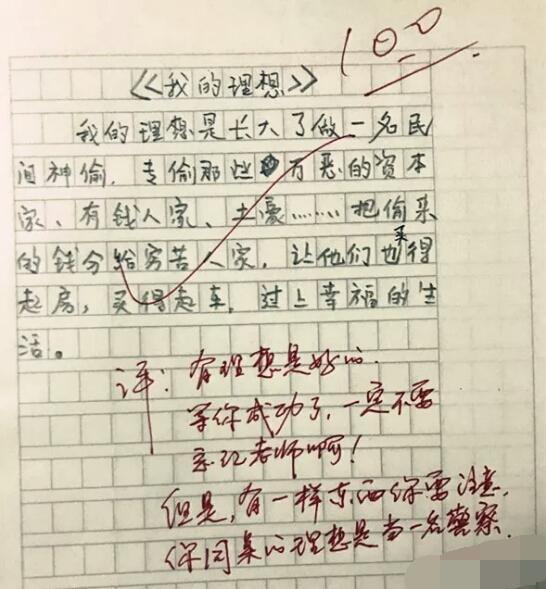 100
《我的理想》
我的理想是长大了做一名民
间神偷，专偷那些万恶的资本
家、有钱人家、土豪……把偷来
的钱分给穷苦人家，让他们也买得
起房，买得起车，过上幸福的生
活。
评：有理想是好的．
等你成功了，一定不要
忘记老师啊！
但是，有一样东西你要注意，
你同桌的理想是当一名警察．